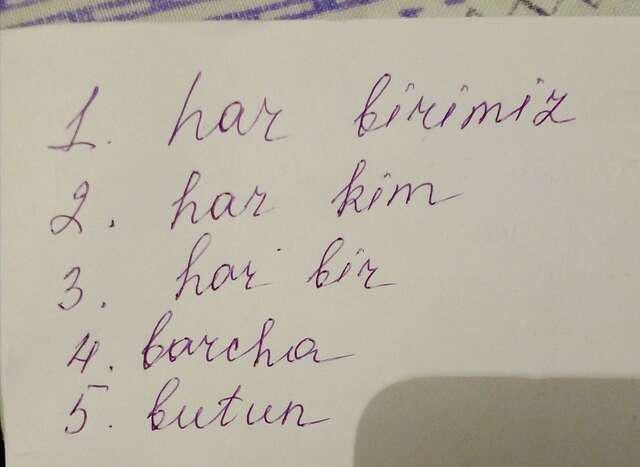 1. har birimiz
2. har kim
3. har bir
4. barcha
5. butun